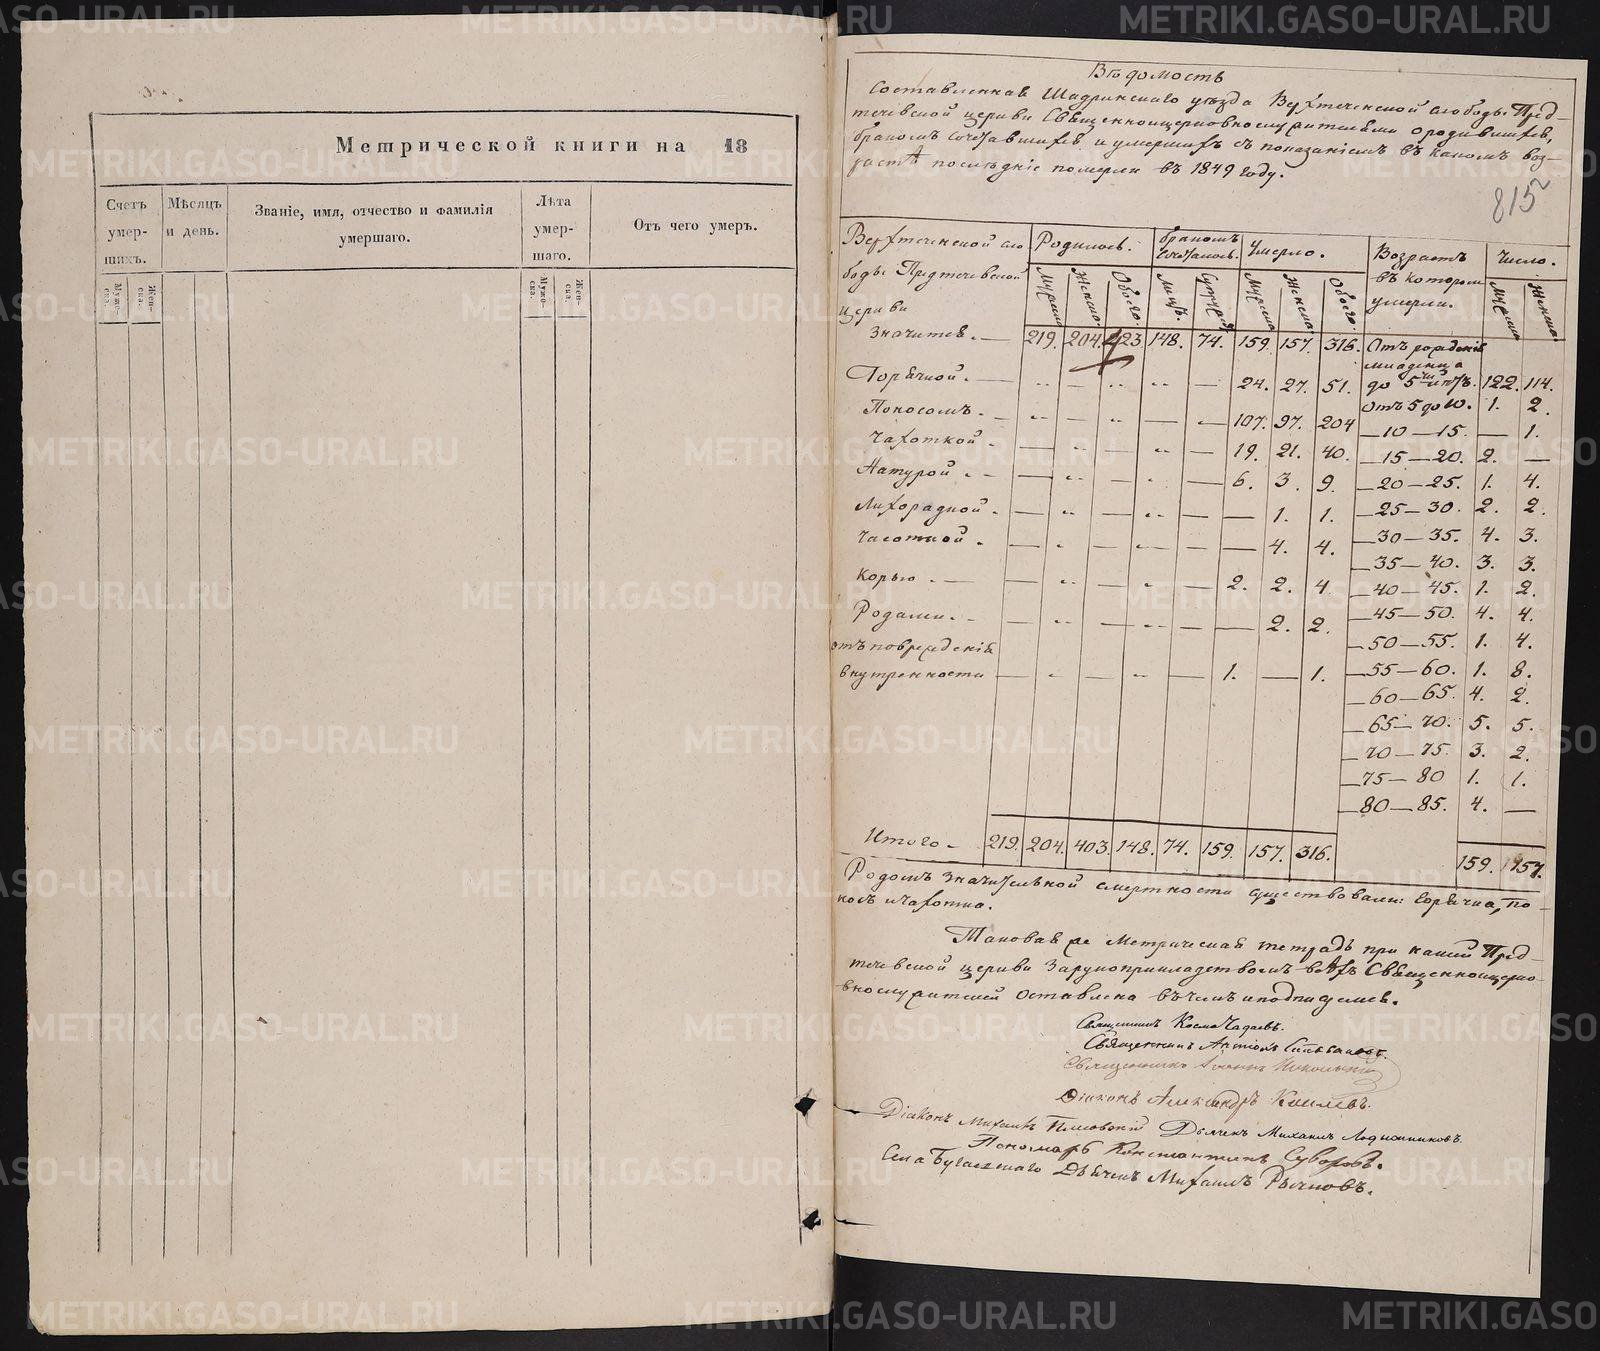 Метрической книги на 18
Счетъ умер- шихъ.
Мѣсяцъ и день.
Званіе, имя, отчество и фамилія умершаго.
Лѣта умер- шаго.
Отъ чего умеръ.
Муже- ска.
Жен- ска.
Муже- ска.
Жен- ска.
Вѣдомость
Составленная Шадринскаго уѣзда Верхтеченской слободы Пред-
течевской церкви Священноцерковнослужителями о родившихся,
бракомъ сочетавшихся и умершихъ съ показаніемъ въ какомъ воз-
растѣ послѣдніе померли въ 1849 году.
815
Верхтеченской сло
боды Предтечевской
церкви
Родилось.
Бракомъ сочеталось.
Умерло.
Возрастъ въ котором умерли.
Число.
Мужеска Женска. Обоего. Лицъ. Супруж. Мужеска Женска. Обоего. Мужеска Женска.
Значится. — 219. 204. 423 148. 74. 159. 157. 316. Отъ рожденія
младенца
Горячкой. — 24. 27. 51. до 5ти лѣтъ. 122. 114.
Отъ 5 до 10. 1. 2.
Поносомъ. — 107. 97. 204 — 10 — 15. — 1.
Чахоткой — 19. 21. 40. — 15 — 20. 2. —
Натурой — 6. 3. 9. — 20 — 25. 1. 4.
Лихорадкой — 1. 1. — 25 — 30. 2. 2.
Часоткой. — 4. 4. — 30 — 35. 4. 3.
— 35 — 40. 3. 3.
Корью — 2. 2. 4. — 40 — 45. 1. 2.
Родами. — 2. 2. — 45 — 50. 4. 4.
отъ поврежденія — 50 — 55. 1. 4.
внутренности — 1. — 1. — 55 — 60. 1. 8.
— 60 — 65. 4. 2.
— 65 — 70. 5. 5.
— 70 — 75. 3. 2.
— 75 — 80 1. 1.
— 80 — 85. 4. —
Итого — 219. 204. 403. 148. 74. 159. 157. 316. 159. 157.
Родомъ значительной смертности существовали: горячка, по-
носъ и чахотка.
Таковая же Метрическая тетрадь при нашей Пред-
течевской церкви за рукоприкладствомъ всѣхъ Священноцерко-
внослужителей оставлена въ чемъ и подпишемся.
Священникъ Косма Чадаевъ.
Священникъ Антоній
Священникъ Іоаннъ Никольскій
Діаконъ Александръ Киселевъ.
Діаконъ Михаилъ Дьячекъ Михаилъ Лодыжниковъ.
Пономарь Константинъ Суворовъ.
Села Бугаевскаго Дьячекъ Михаилъ Рычковъ.
METRIKI.GASO-URAL.RU